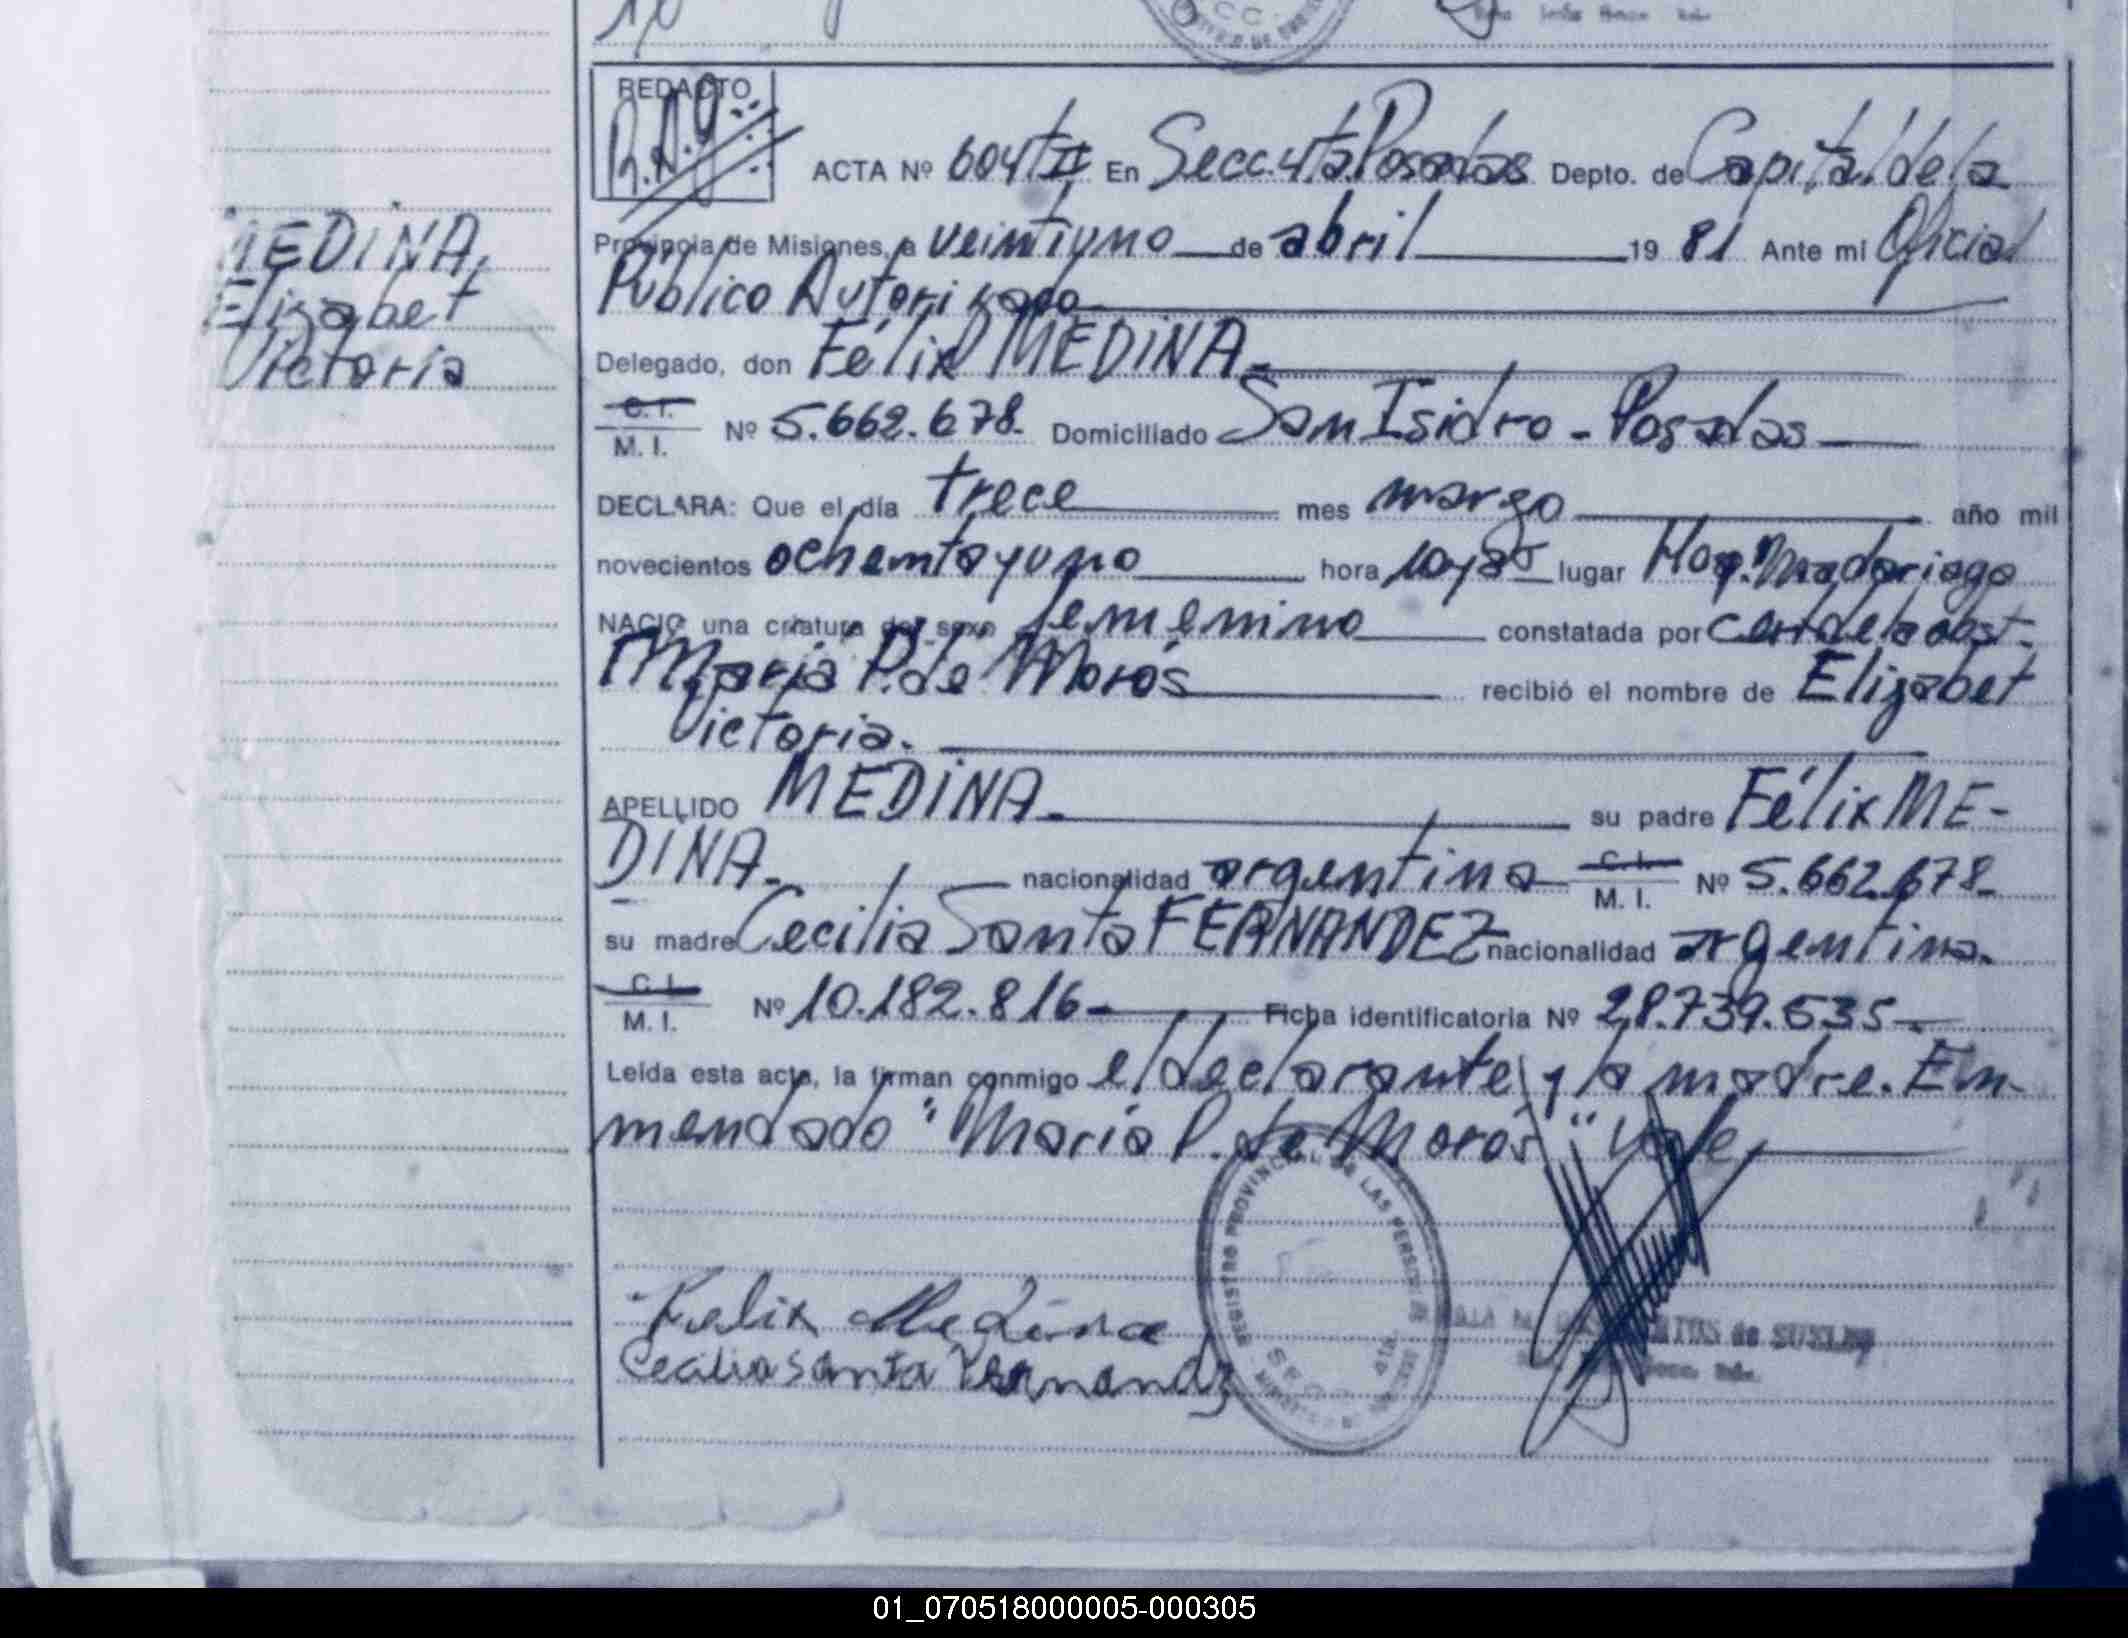 REDACTO
ACTA Nº 604 TII En Secc. 4ta. Posadas Depto. de Capital de la
MEDINA,
Provincia de Misiones, a veintiyuno de abril 19 81 Ante mi Oficial
Elizabet
Público Autorizado
Victoria
Delegado, don Félix MEDINA.
C. I.
M. I. Nº 5.662.678. Domiciliado San Isidro - Posadas
DECLARA: Que el día trece mes marzo año mil
novecientos ochentayuno hora lugar Hosp. Madariaga
NACIO una criatura del sexo femenino constatada por cert de la obst.
María P. de Morós recibió el nombre de Elizabet
Victoria.
APELLIDO MEDINA. su padre Félix ME-
DINA. nacionalidad argentina C. I. M. I. Nº 5.662.678-
su madre Cecilia Santa FERNANDEZ nacionalidad argentina.
C. I.
M. I. Nº 10.182.816- Ficha identificatoria Nº 28.739.535-
Leída esta acta, la firman conmigo el declarante y la madre. En-
mendado "María P. de Morós" Vale,
REGISTRO PROVINCIAL DE LAS PERSONAS
SECC. 4ta.
Felix Medina
Cecilia Santa Fernandz
01_070518000005-000305